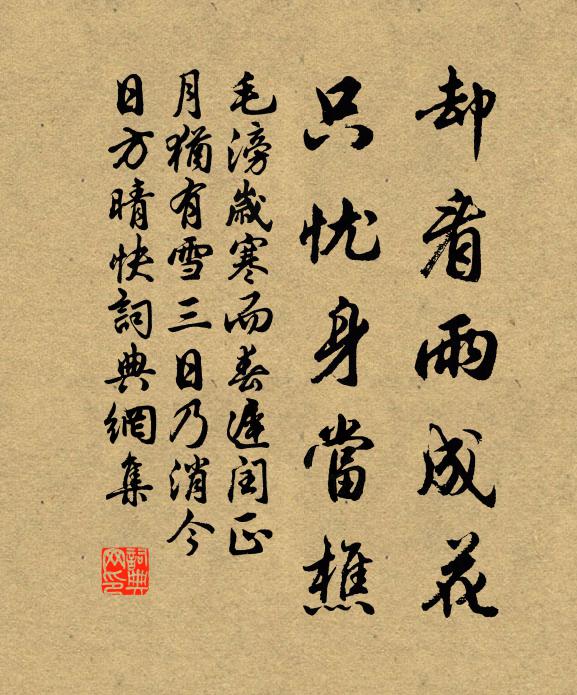 却看雨成花
只忧身當樵
毛滂歲寒而春遲閏正
月猶有雪三日乃消今
日方晴快詞典網集
詞典
网印